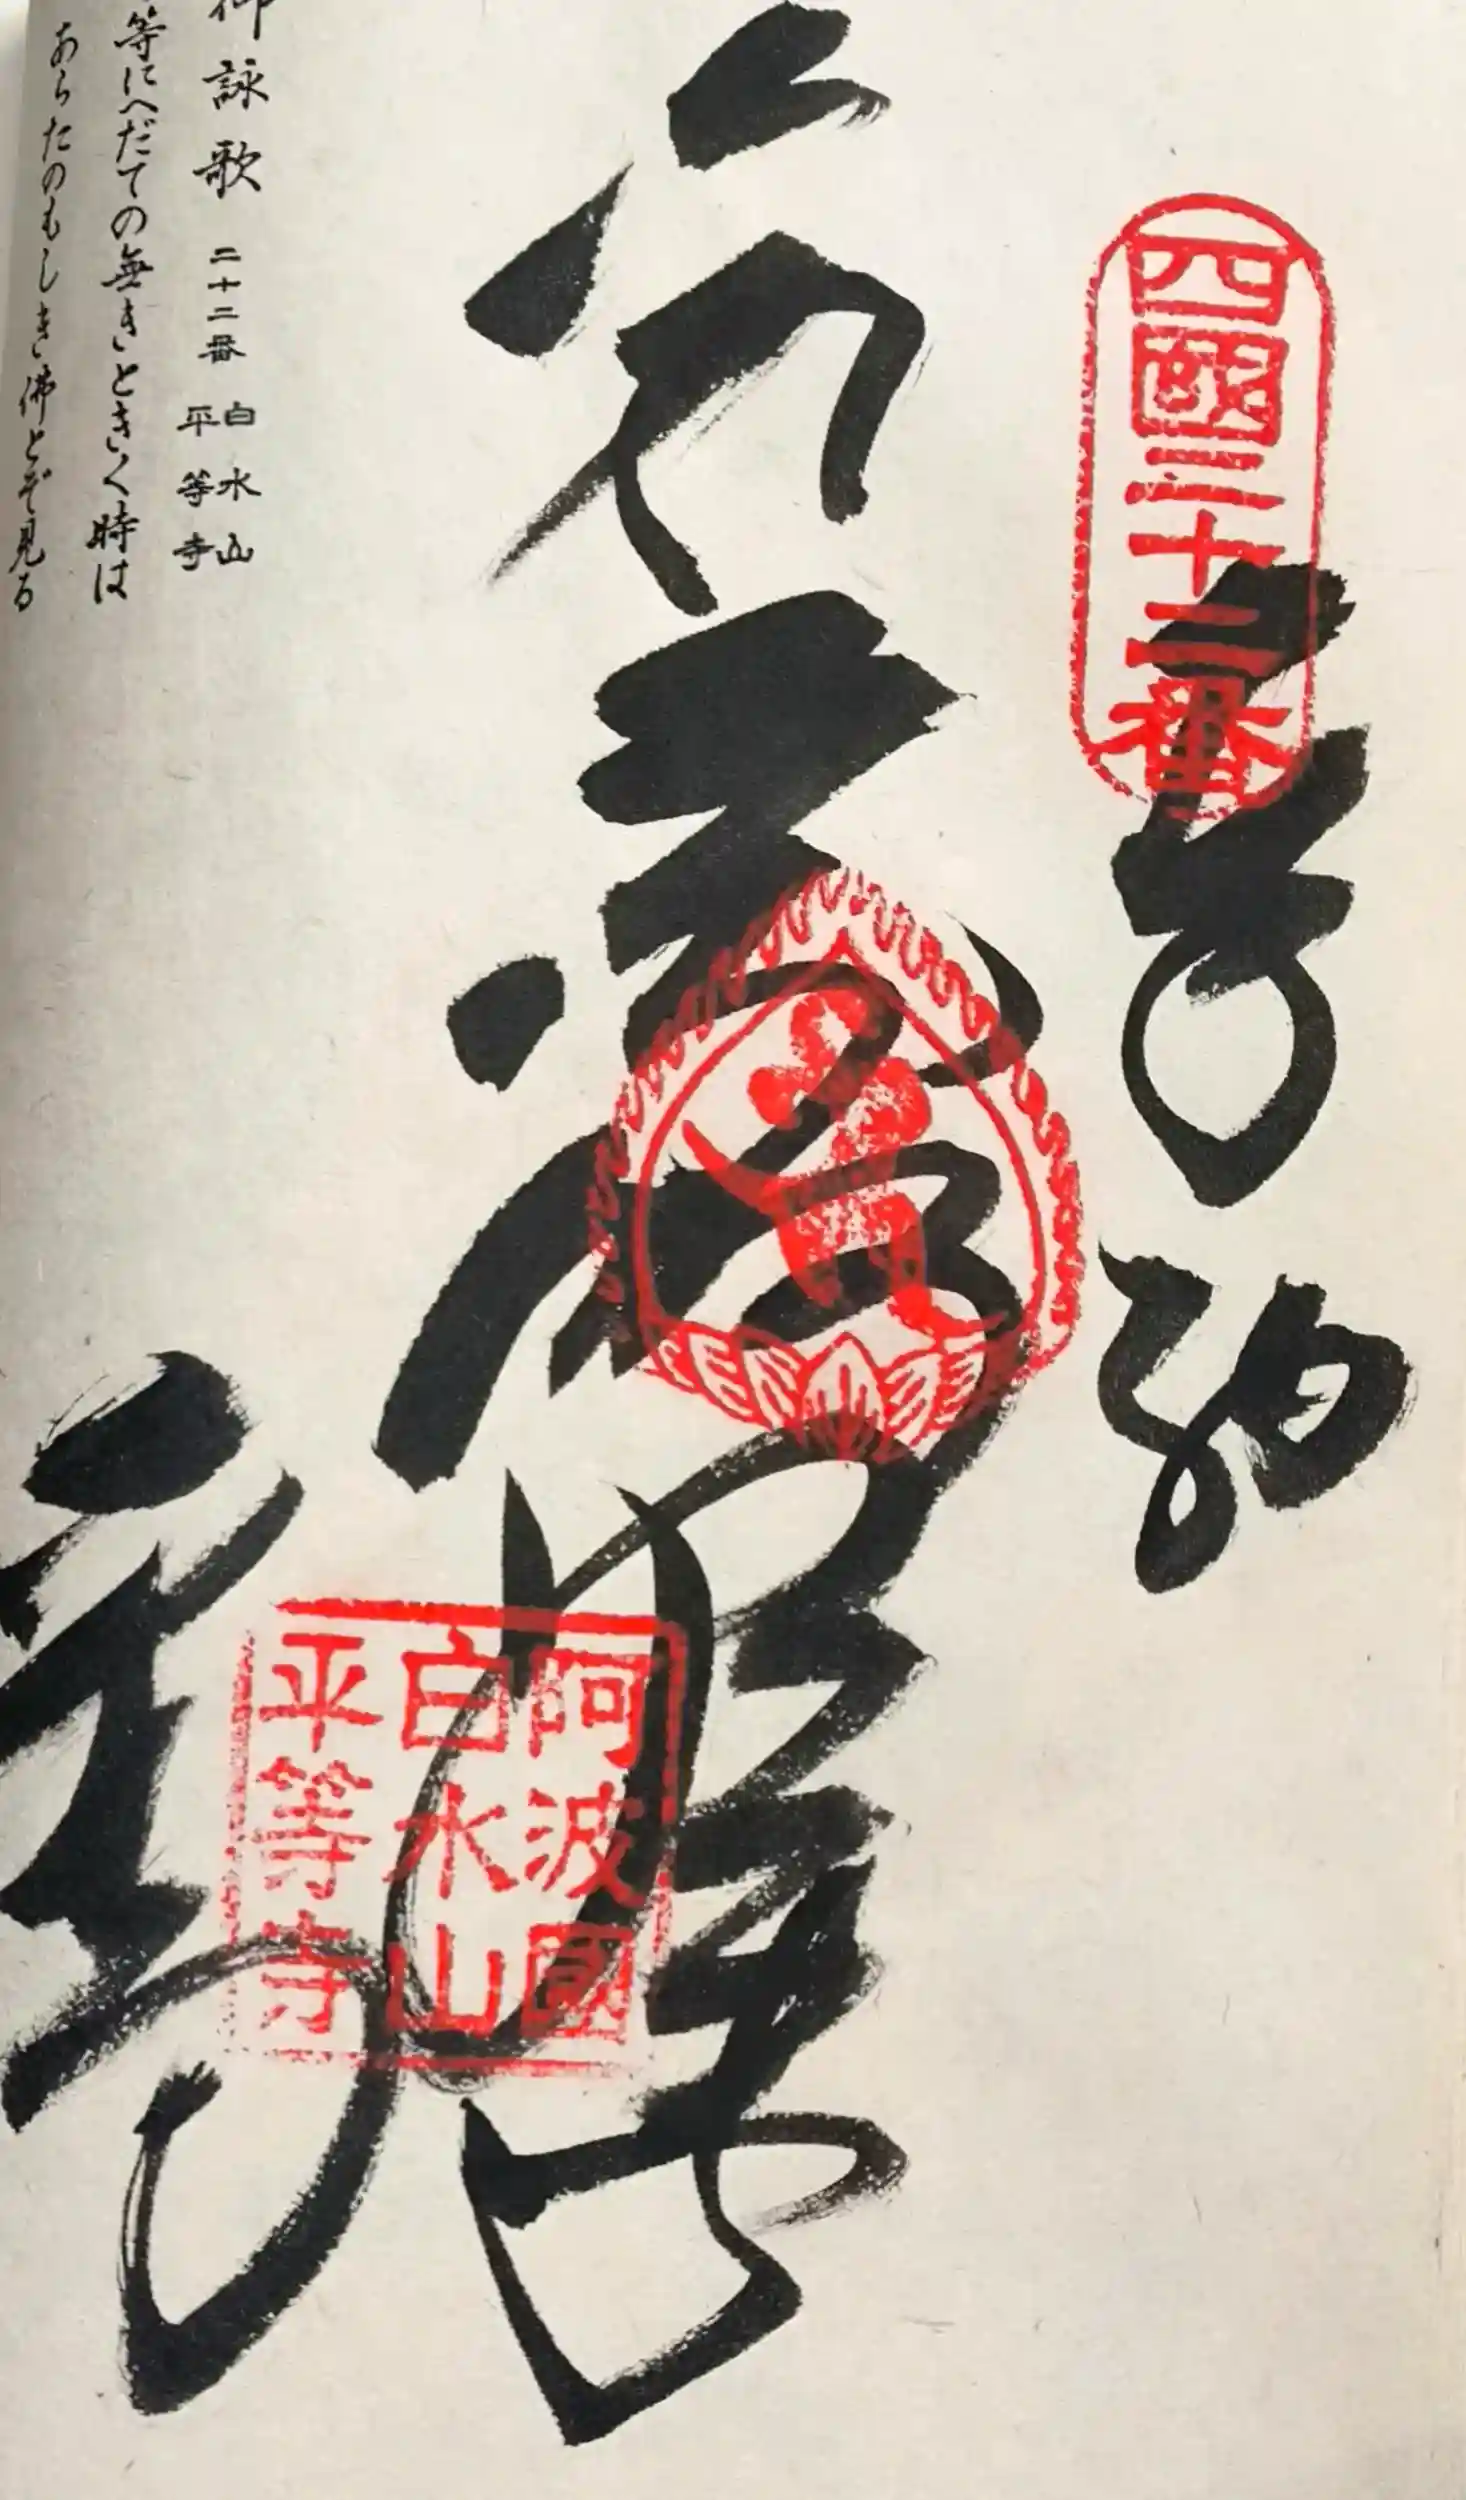 四國二十二番
奉納
阿波國
白水山
平等寺
平等寺
詠歌 二十二番 白水山 平等寺
等にへだての無きときく時は
あらたのもしき佛とぞ見る